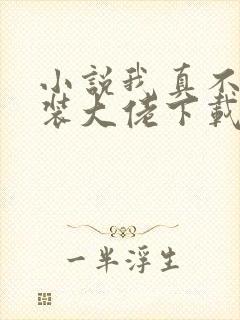 小説我真不
裝大佬下載
一半浮生